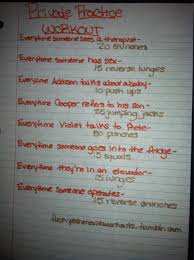 Private Practice
WORKOUT
Everytime someone sees a therapist-
20 crunches
Everytime someone has sex-
15 reverse lunges
Everytime Addison talks about a baby-
10 push ups
Everytime Cooper refers to his son-
25 jumping jacks
Everytime Violet talks to Pete-
50 punches
Everytime someone goes into the fridge-
15 squats
Everytime they're in an elevator-
15 lunges
Everytime someone operates-
15 reverse crunches
.tumblr.com